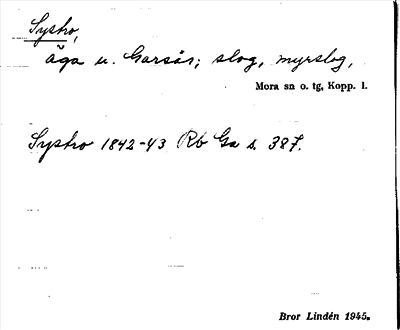 Systro,
äga u. Garsås; slog, myrslog,
Mora sn o. tg, Kopp. l.
Systro 1842-43 Rb Ga s. 387.
Bror Lindén 1945.